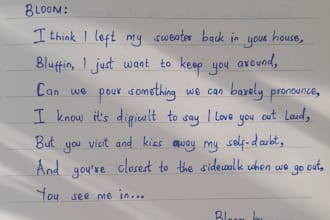 BLOOM:
I think I left my sweater back in your house,
Bluffin, I just want to keep you around,
Can we pour something we can barely pronounce,
I know it's difficult to say I love you out loud,
But you visit and kiss away my self-doubt,
And you're closest to the sidewalk when we go out,
You see me in...
Bloom by